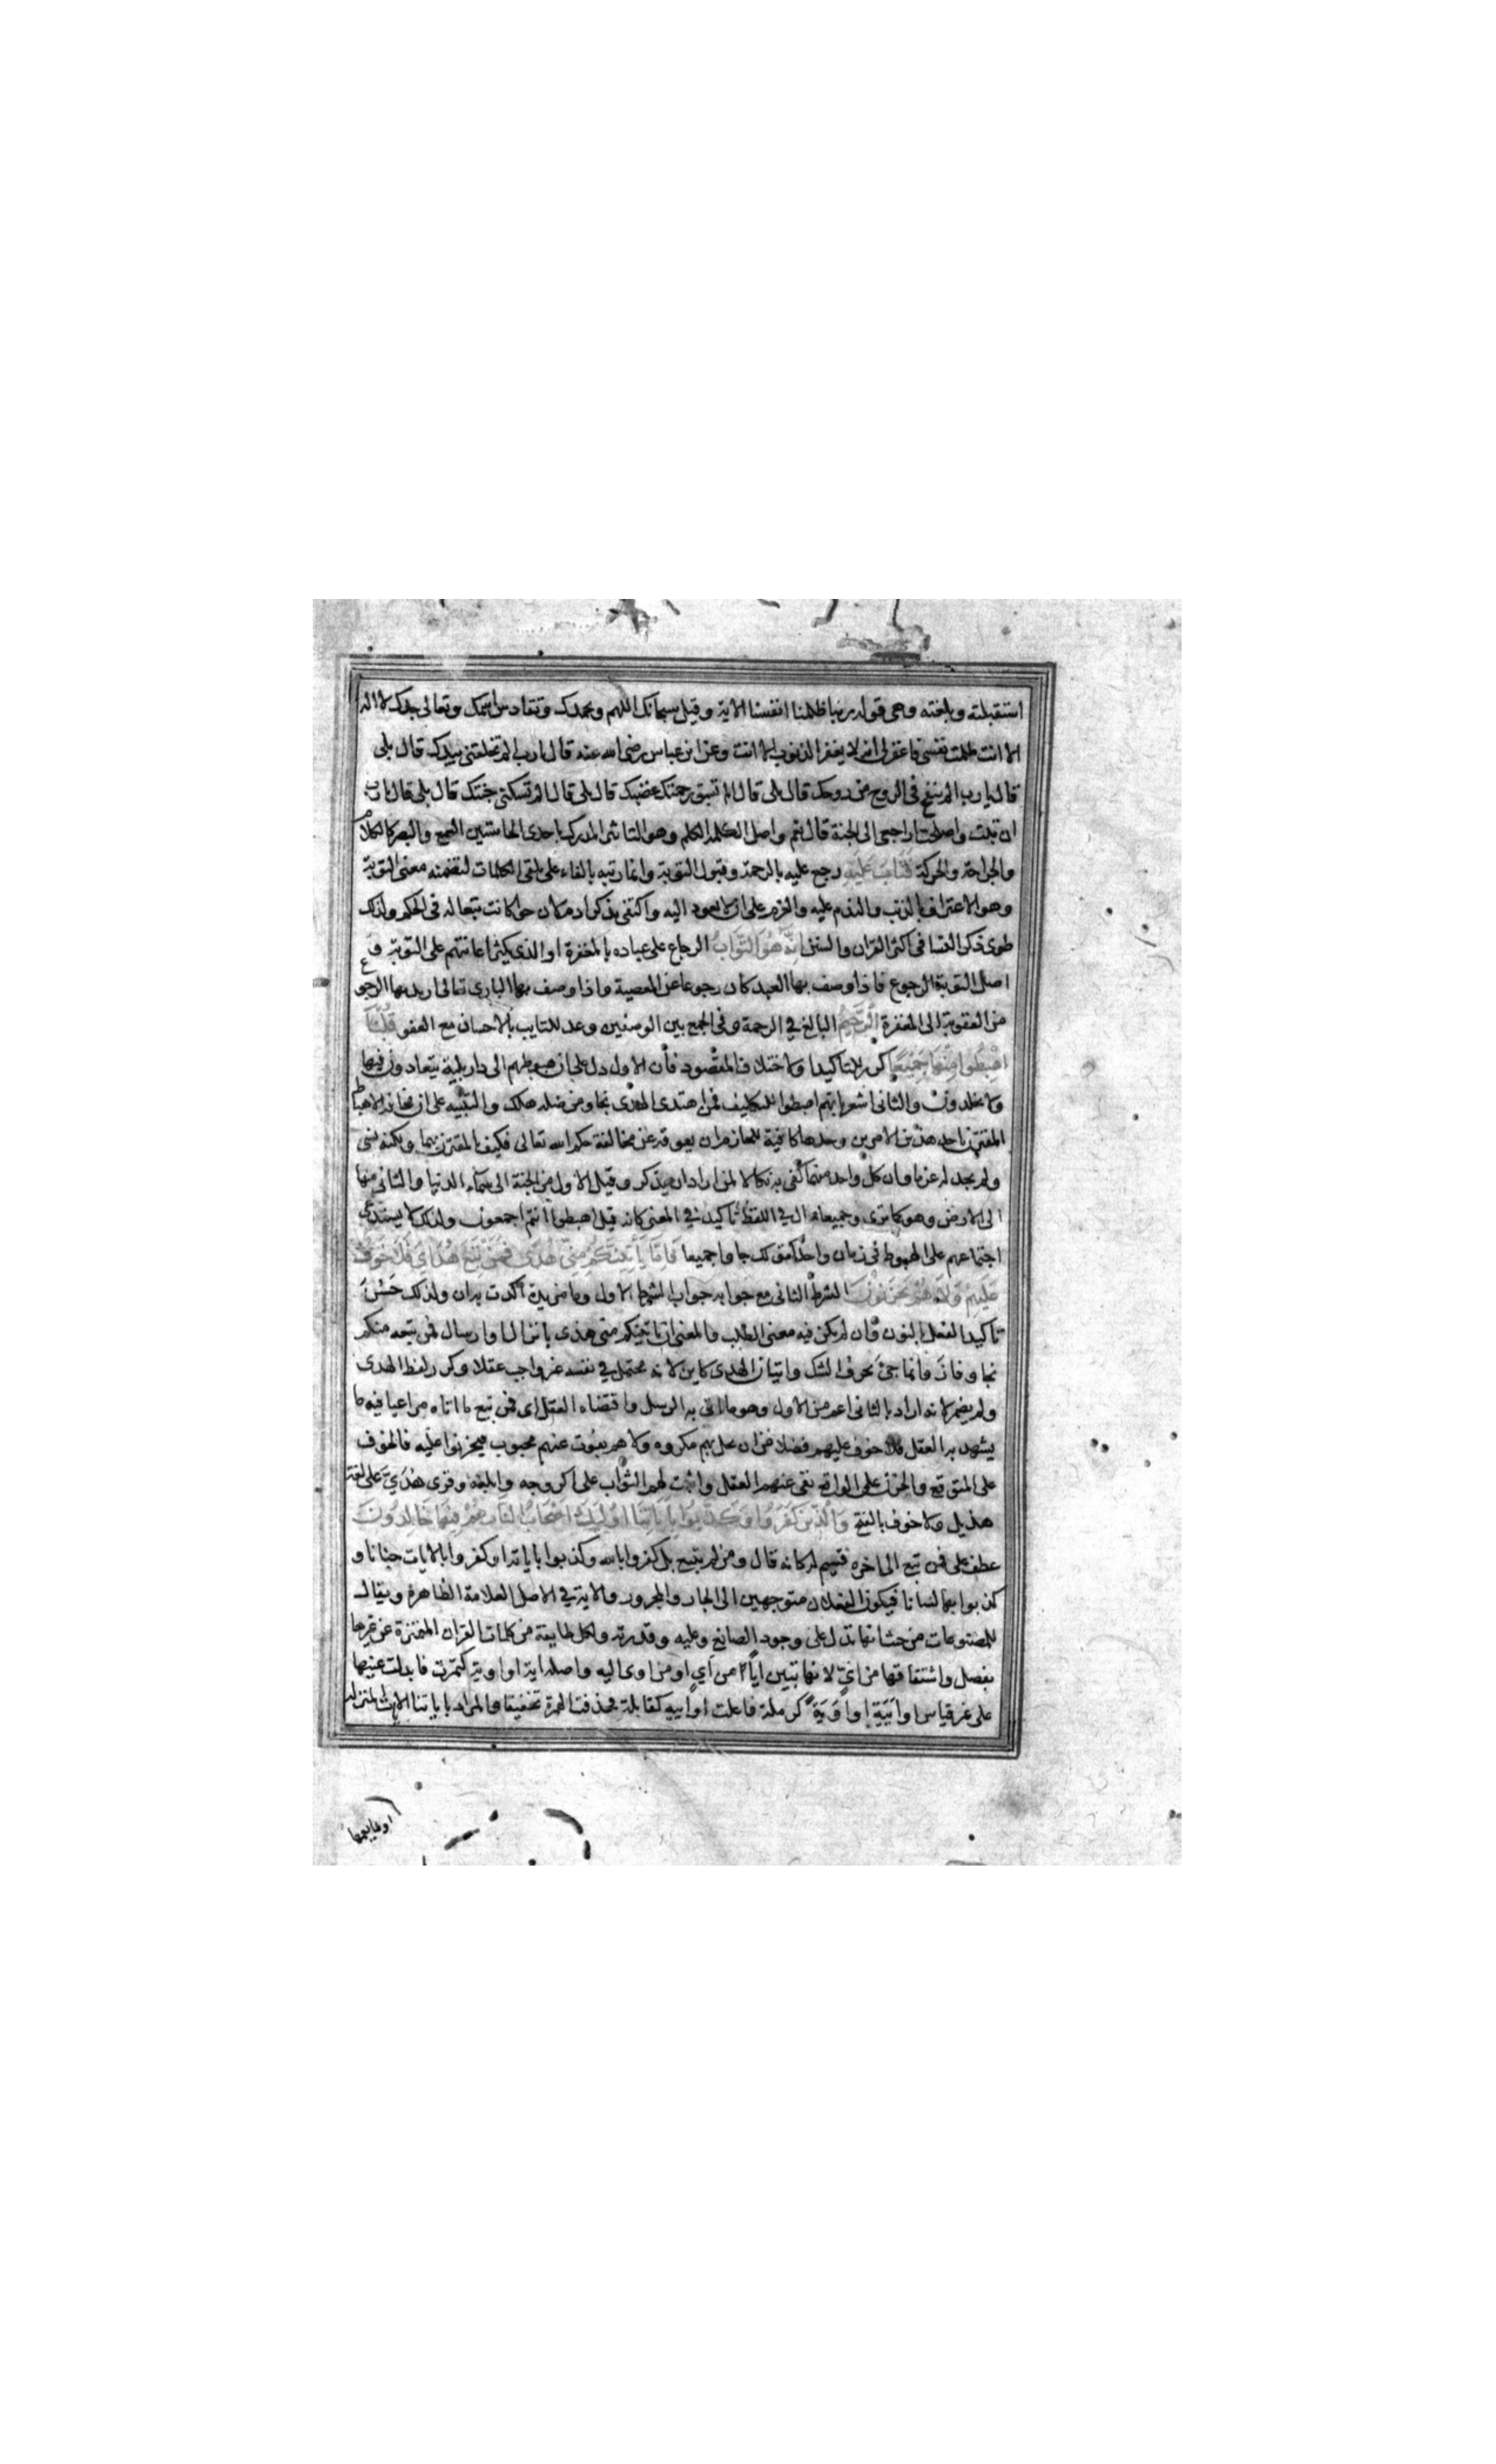 استقبلته وبلغته وهى قوله ربنا ظلمنا انفسنا الاية وقيل سبحانك اللهم وبحمدك وتقادس اسمك وتعالى جدك لا اله
الا انت ظلمت نفسى فاغفرلى انه لا يغفر الذنوب الا انت وعن ابن عباس رضى الله عنه قال يارب الم تخلقنى بيدك قال بلى
قال يارب الم تنفخ فى الروح من روحك قال بلى قال الم تسبق رحمتك غضبك قال بلى قال الم تسكنى جنتك قال بلى قال يارب
ان تبت واصلحت اراجعى الى الجنة قال نعم واصل الكلمة الكلم وهو التاثير المدرك باحدى الحاستين السمع والبصر كالكلام
والجراحة والحركة فَتَابَ عَلَيْهِ رجع عليه بالرحمة وقبول التوبة وانما رتبه بالفاء على تلقى الكلمات لتضمنه معنى التوبة
وهو الاعتراف بالذنب والندم عليه والعزم على ان لا يعود اليه واكتفى بذكر ادم لان حوا كانت تبعا له فى الحكم ولذلك
طوى ذكر النسا فى اكثر القران والسنن اِنَّهُ هُوَ التَّوَّابُ الرجاع على عباده بالمغفرة او الذى يكثر اعانتهم على التوبة و
اصل التوبة الرجوع فاذا وصف بها العبد كان رجوعا عن المعصية واذا وصف بها البارى تعالى اريد بها الرجوع
من العقوبة الى المغفرة الرَّحِيمُ البالغ في الرحمة وفى الجمع بين الوصفين وعد للتايب بالاحسان مع العفو قُلْنَا
اهْبِطُوا مِنْهَا جَمِيْعًا كرر للتاكيد او لاختلاف المقصود فان الاول دل على ان هبوطهم الى دار بلية يتعادون فيها
ولا يخلدون والثانى اشعر بانهم اهبطوا للتكليف فمن اهتدى الهدى نجا ومن ضله هلك والتنبيه على ان مخافة الاهباط
المقترن باحد هذين الامرين وحدها كافية للحازم ان يعوقه عن مخالفة حكم الله تعالى فكيف بالمقترن بهما ولكنه نسى
ولم يجد له عزما وان كل واحد منهما كفى به نكالا لمن اراد ان يذكر وقيل الاول من الجنة الى سماء الدنيا والثانى منها
الى الارض وهو كما ترى وجميعا حال في اللفظ تاكيد في المعنى كانه قيل اهبطوا انتم اجمعون ولذلك لا يستدعى
اجتماعهم على الهبوط فى زمان واحد كقولك جاوا جميعا فَاِمَّا يَاْتِيَنَّكُمْ مِنِّى هُدًى فَمَنْ تَبِعَ هُدَايَ فَلَا خَوْفٌ
عَلَيْهِمْ وَلَا هُمْ يَحْزَنُوْنَ الشرط الثانى مع جوابه جواب الشرط الاول وما مزيدة اكدت به ان ولذلك حَسُنَ
تاكيد الفعل بالنون وان لم يكن فيه معنى الطلب والمعنى ان ياتينكم منى هدى بانزال او ارسال فمن تبعه منكم
نجا وفاز وانما جئ بحرف الشك واتيان الهدى كاين لانه محتمل في نفسه غير واجب عقلا وكرر لفظ الهدى
ولم يضمر لانه اراد بالثانى اعم من الاول وهو ما اتى به الرسل واقتضاه العقل اى فمن تبع ما اتاه مراعيا فيه ما
يشهد به العقل فلا خوف عليهم فضلا من ان يحل بهم مكروه ولا هم يفوت عنهم محبوب فيحزنوا عليه فالخوف
على المتوقع والحزن على الواقع نفى عنهم العقاب واثبت لهم الثواب على اكد وجه وابلغه وقرئ هُدَيَّ على لغة
هذيل ولا خوف بالفتح وَالَّذِينَ كَفَرُوا وَكَذَّبُوا بِاٰيَاتِنَا اُولٰئِكَ اَصْحَابُ النَّارِ هُمْ فِيْهَا خَالِدُونَ
عطف على فمن تبع الى اخره قسيم له كانه قال ومن لم يتبع بل كفروا بالله وكذبوا باياته او كفروا بالايات جنانا و
كذبوا بها لسانا فيكون الفعلان متوجهين الى الجار والمجرور والاية في الاصل العلامة الظاهرة ويقال
للمصنوعات من حيث انها تدل على وجود الصانع وعلمه وقدرته ولكل طايفة من كلمات القران المتميزة عن غيرها
بفصل واشتقاقها من اىّ لانها تبين ايًّا من اىٍّ او من اوى اليه واصله اية او اوية كتمرة فابدلت عينها
على غير قياس او اَيَيَة او اَوَيَة كرمكة فاعلت او اايية كقايلة فحذفت الهمزة تخفيفا والمراد باياتنا الايات المنزلة
او ما يعمها